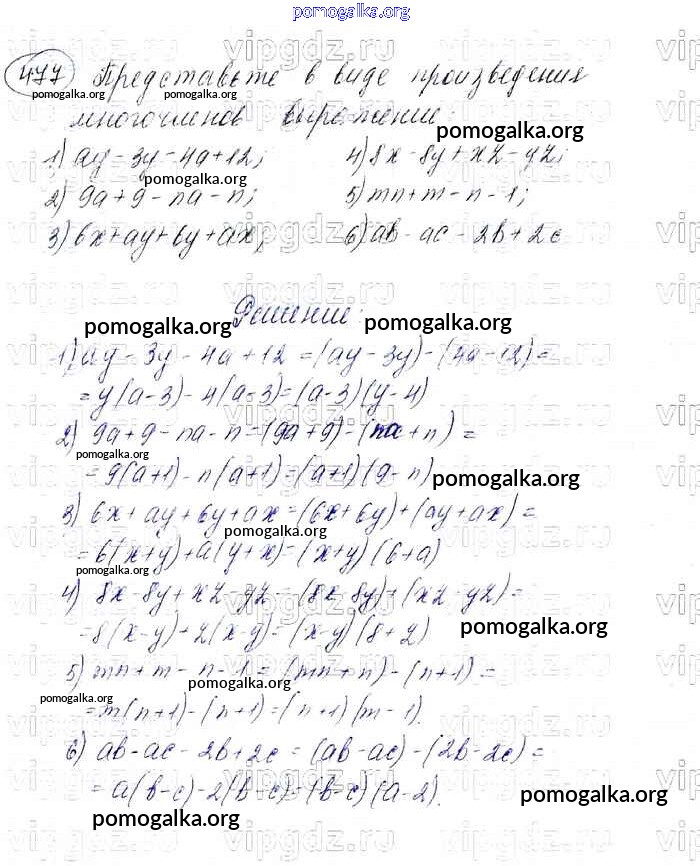 pomogalka.org
477 Представьте в виде произведения
pomogalka.org pomogalka.org
многочленов выражение:
pomogalka.org
1) ay - 3y - 4a + 12; 4) 8x - 8y + xz - yz;
pomogalka.org
2) 9a + 9 - na - n; 5) mn + m - n - 1;
3) 6x + ay + 6y + ax; 6) ab - ac - 2b + 2c
Решение:
pomogalka.org pomogalka.org
1) ay - 3y - 4a + 12 = (ay - 3y) - (4a - 12) =
= y(a - 3) - 4(a - 3) = (a - 3)(y - 4)
2) 9a + 9 - na - n = (9a + 9) - (na + n) =
pomogalka.org
= 9(a + 1) - n(a + 1) = (a + 1)(9 - n)
pomogalka.org
3) 6x + ay + 6y + ax = (6x + 6y) + (ay + ax) =
pomogalka.org
= 6(x + y) + a(y + x) = (x + y)(6 + a)
pomogalka.org
4) 8x - 8y + xz - yz = (8x - 8y) + (xz - yz) =
= 8(x - y) + z(x - y) = (x - y)(8 + z)
pomogalka.org
5) mn + m - n - 1 = (mn + m) - (n + 1) =
pomogalka.org
pomogalka.org
= m(n + 1) - (n + 1) = (n + 1)(m - 1).
6) ab - ac - 2b + 2c = (ab - ac) - (2b - 2c) =
= a(b - c) - 2(b - c) = (b - c)(a - 2).
pomogalka.org
pomogalka.org